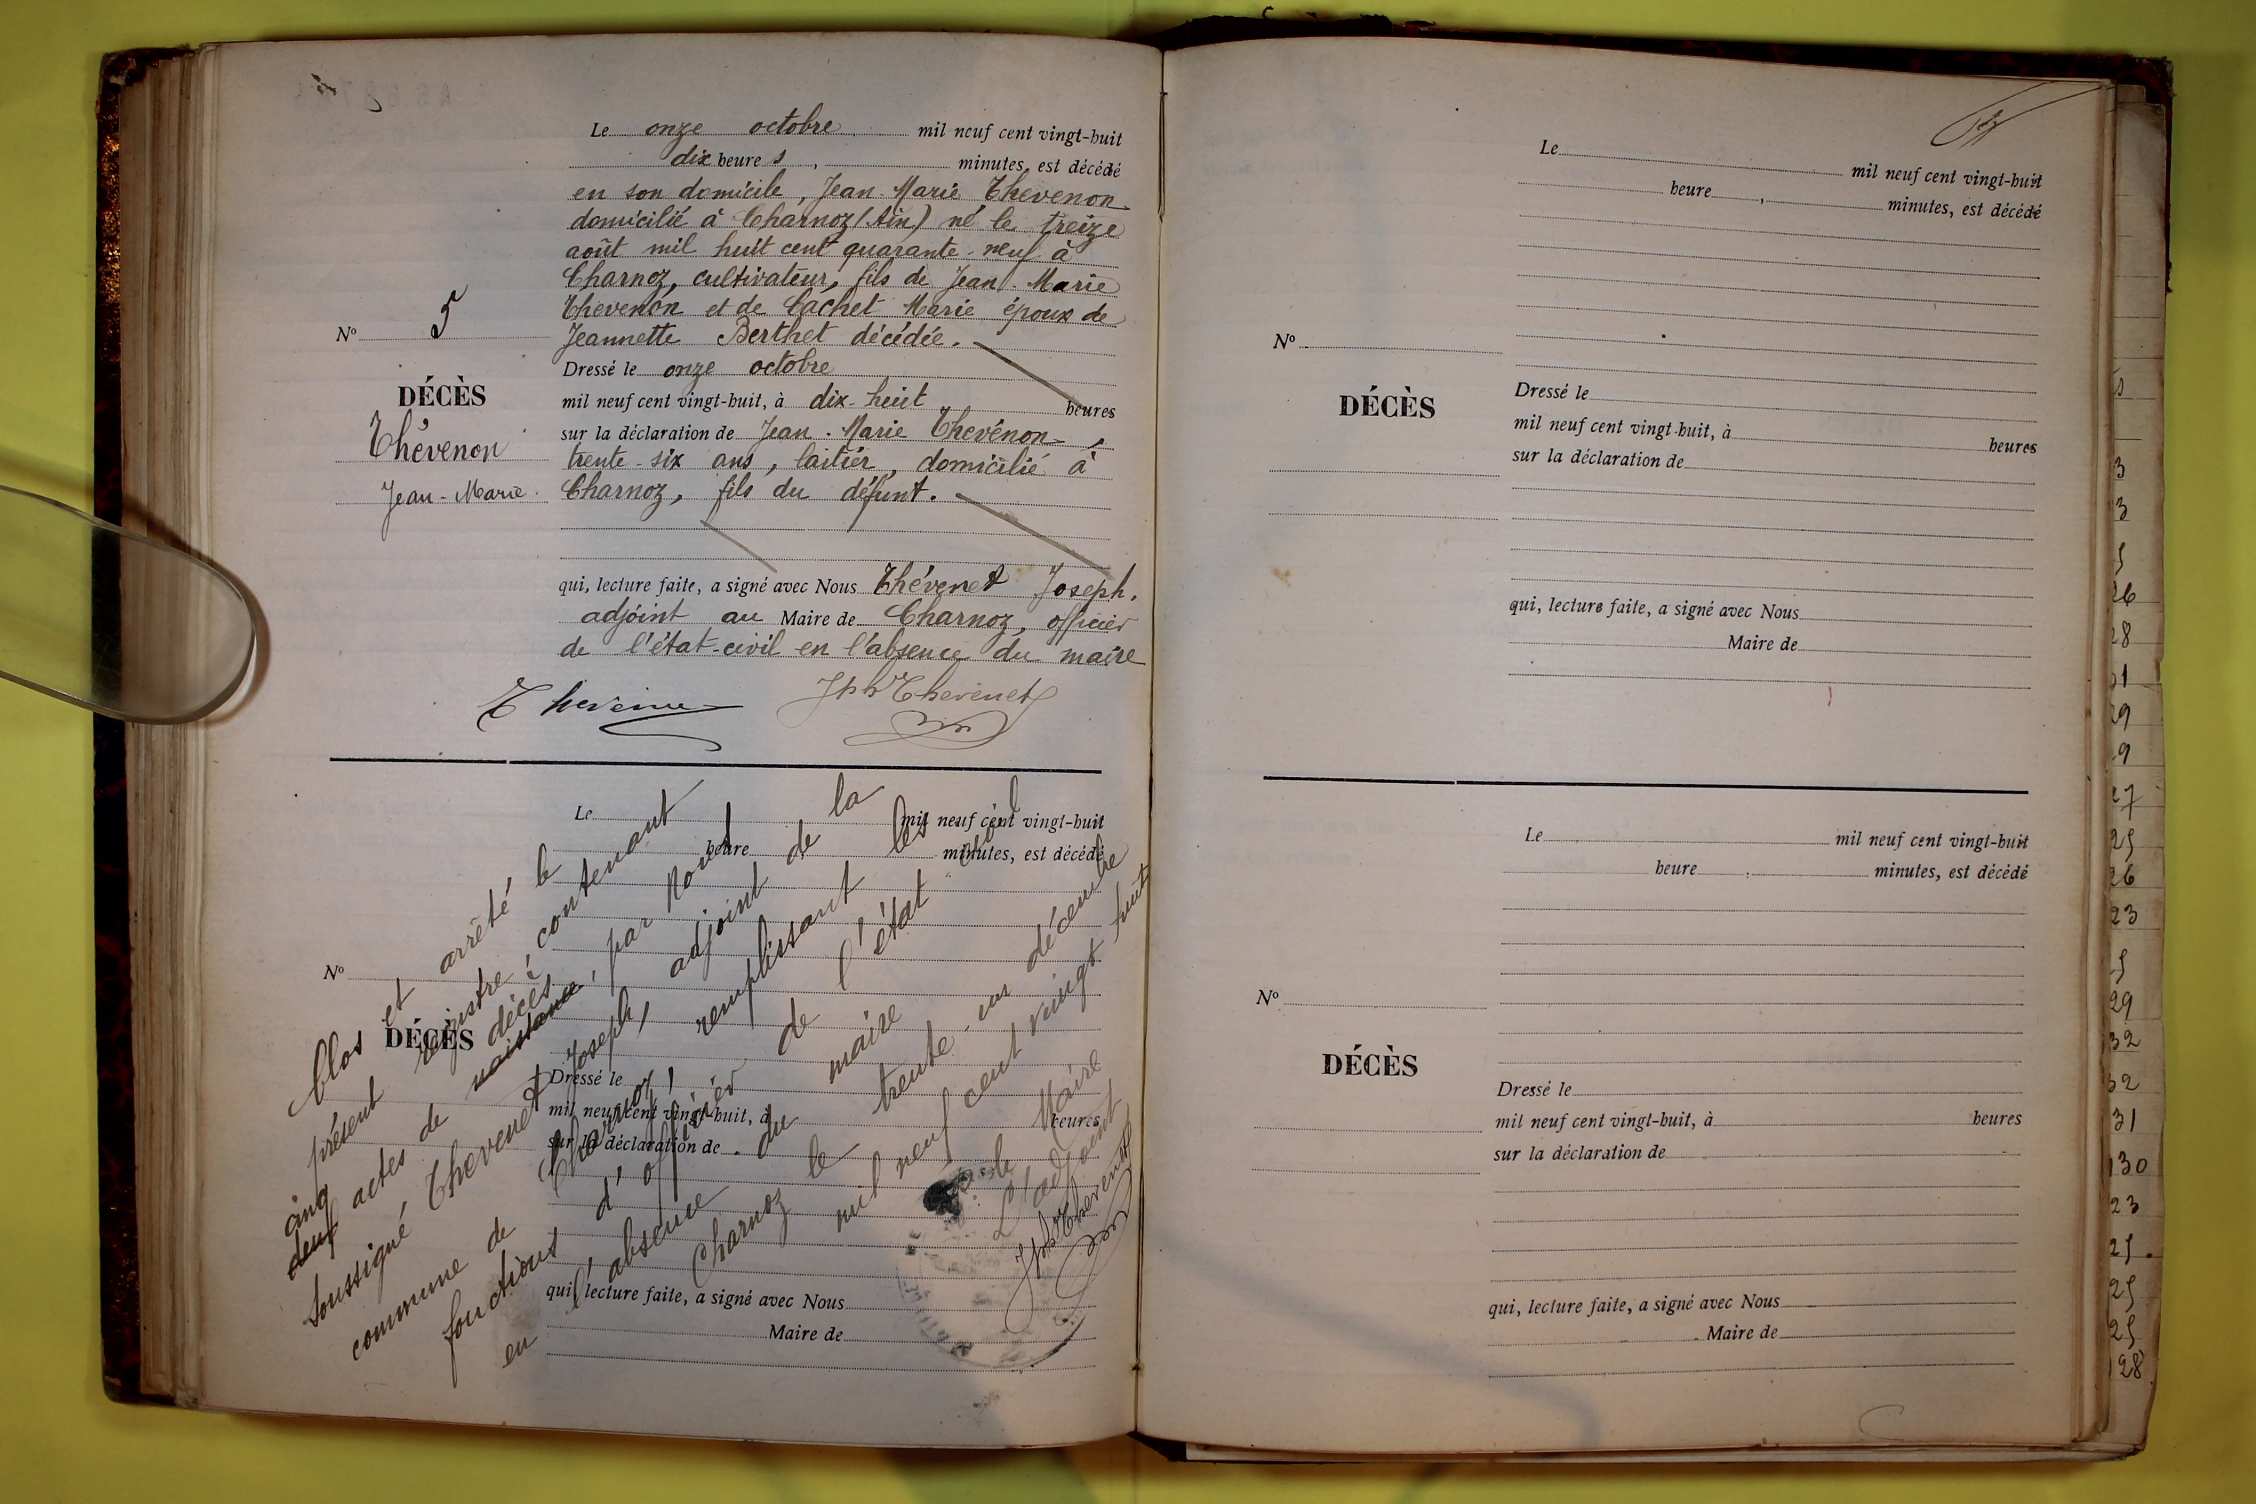 Le onze octobre mil neuf cent vingt-huit
dix heures, minutes, est décédé
en son domicile, Jean-Marie Thévenon
domicilié à Charnoz (Ain) né le treize
août mil huit cent quarante-neuf à
Charnoz, cultivateur, fils de Jean-Marie
Thevenon et de Cachet Marie époux de
Jeannette Berthet décédée.
Nº 5
DÉCÈS
Thévenon
Jean-Marie.
Dressé le onze octobre
mil neuf cent vingt-huit, à dix-huit heures
sur la déclaration de Jean-Marie Thevénon,
trente-six ans, laitier, domicilié à
Charnoz, fils du défunt.
qui, lecture faite, a signé avec Nous Thévenet Joseph,
adjoint au Maire de Charnoz, officier
de l'état-civil en l'absence du maire
Jph Thevenet
Le mil neuf cent vingt-huit
heure minutes, est décédé
Nº
DÉCÈS
Dressé le
mil neuf cent vingt-huit, à heures
sur la déclaration de
qui, lecture faite, a signé avec Nous
Maire de
Clos et arrêté le
présent registre, contenant
cinq
deux actes de naissance, par Nous
décès
soussigné Thevenet Joseph, adjoint de la
commune de Charnoz, remplissant les
fonctions d'officier de l'état civil
en l'absence du maire.
Charnoz le trente-un décembre
mil neuf cent vingt huit
p. le Maire
L'adjoint
Jph Thevenet
Le mil neuf cent vingt-huit
heure, minutes, est décédé
Nº
DÉCÈS
Dressé le
mil neuf cent vingt-huit, à heures
sur la déclaration de
qui, lecture faite, a signé avec Nous
Maire de
Le mil neuf cent vingt-huit
heure, minutes, est décédé
Nº
DÉCÈS
Dressé le
mil neuf cent vingt-huit, à heures
sur la déclaration de
qui, lecture faite, a signé avec Nous
Maire de